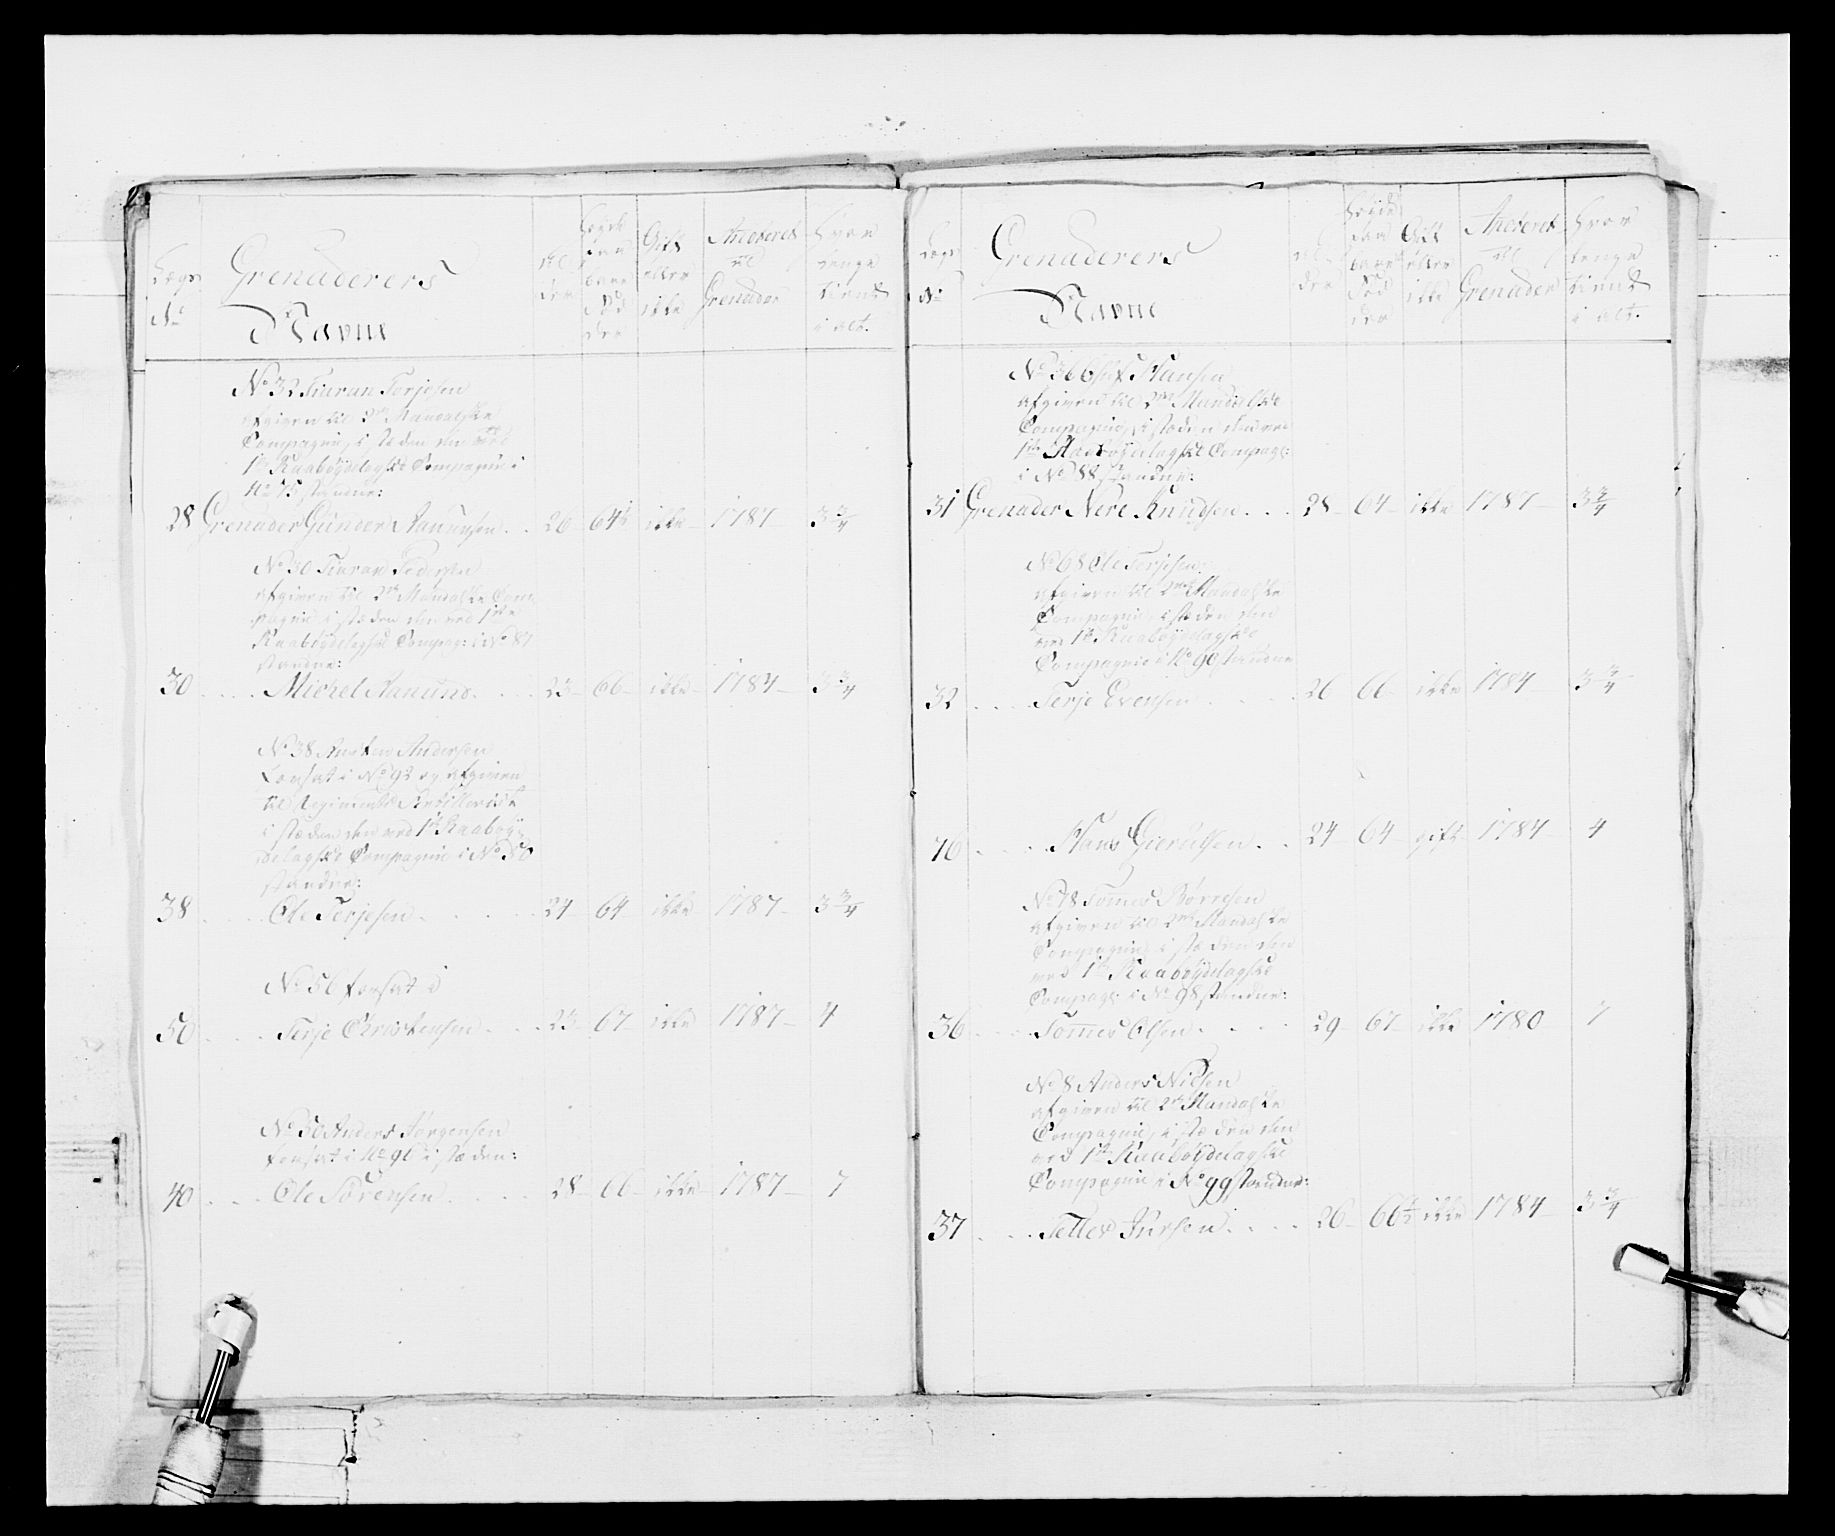 Lægs
No
Grenaderers
Navne
Al
der
Høyde
Gift
eller
ikke
Anoteret
til
Grenader
hvor
længe
tient
i alt.
No 32 Torjesen
afgiven til 2de Mandalske
Compagnie, i stæden den ved
1te Raabøydelagske Compagnie i
No 75 standne:
28 Grenader Gunder Aanunsen . . 26 64½ ikke 1787 3¾
No 30 Pedersen
afgiven til 2de Mandalske Com-
pagnie i stæden den ved 1te
Raabøydelagske Compag: i No 87
standne:
30 . . . . Michel Aanund . . . . 23 66 ikke 1784 3¾
No 38 Andersen
forsat i No 92 og afgiven
til Regimentets Artillerie
i stæden den ved 1te Raaböy-
delagske Compagnie i No 50
standne:
38 . . . . Ole Terjesen . . . . . 24 64 ikke 1787 3¾
No 56 forsat i
50 . . . . Terje Christensen . . . 23 67 ikke 1787 4
No 50 Anders Jørgensen
forsat i No 96 i stæden:
40 . . . Ole Sørensen . . . . 28 66 ikke 1787 7
Lægs
No
Grenaderers
Navne
Al
der
Høyde
Gift
eller
ikke
Anoteret
til
Grenader
hvor
længe
tient
i alt.
No 36 Hansen
afgiven til 2den Mandalske
Compagnie, i stæden den ved
1te Raabøydelagske Compag:
i No 88 standne:
31 Grenader Nere Knudsen . . . 28 64 ikke 1787 3¾
No 68 Ole Torjesen
afgiven til 2den Mandalske
Compagnie, i stæden den
ved 1te Raabøydelagske
Compagnie i No 90 standne
32 . . . . Terje Evensen . . . . 26 66 ikke 1784 3¾
76 . . . . Hans Gierulsen . . 24 64 gift 1784 4
No 78 Tomes Børresen
afgiven til 2den Mandalske
Compagnie, i stæden den
ved 1te Raabøydelagske
Compag: i No 98 standne:
36 . . . . Tomes Olsen . . . . 29 67 ikke 1780 7
No 8 Anders Nilsen
afgiven til 2de Mandalske
Compagnie, i stæden den
ved 1te Raabøydelagske
Compagnie i No 99 standne:
37 . . . . Tellev . . . . 26 66½ ikke 1784 3¾